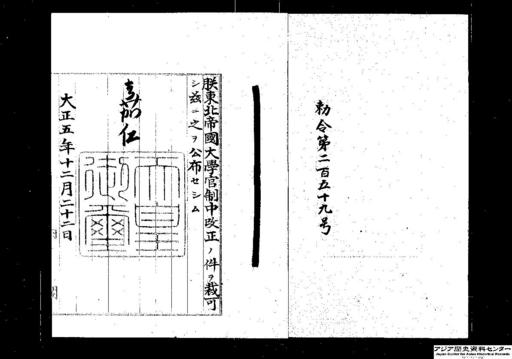 勅令第二百五十九号
朕東北帝國大學官制中改正ノ件ヲ裁可
シ茲ニ之ヲ公布セシム
嘉仁
天皇御璽
大正五年十二月二十二日
内
閣
アジア歴史資料センター
Japan Center for Asian Historical Records